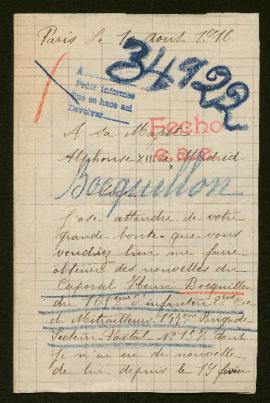 Paris le 1 Aout 1916
34922
A
Pedir informes
Que se hace así
Devolver
Fecho
A la Majesté
Alphonse XIII de Madrid
Bocquillon
J'ose attendre de votre
grande bonté que vous
voudriez bien me faire
obtenir des nouvelles du
Caporal Henri Bocquillon
du d'infanterie
de Mitrailleurs Brigade
Secteur Postal No dont
je n'ai eu de nouvelle
de lui depuis le 19 juin